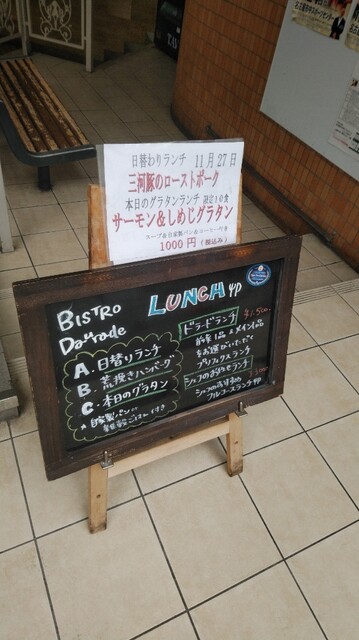 日替わりランチ 11月27日
三河豚のローストポーク
本日のグラタンランチ 限定10食
サーモン&しめじグラタン
スープ&自家製パン&コーヒー付き
1000円(税込み)
BISTRO
Dorade
LUNCH
A. 日替りランチ
B. 荒挽きハンバーグ
C. 本日のグラタン
★ 自家製パン
雑穀ごはん 付き
ドラードランチ
前菜1品 & メイン1品
をお選びいただく
プリフィクスランチ
シェフのおまかせランチ
シェフのおすすめの
フルコースランチ